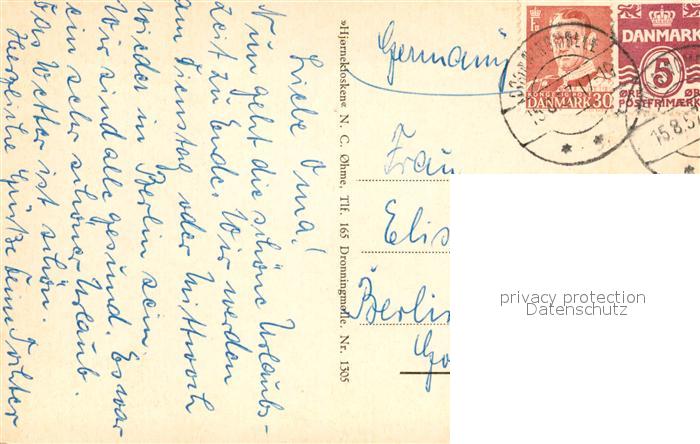 Liebe Oma!
Nun geht die schöne Urlaubs-
zeit zu Ende. Wir werden
am Dienstag oder Mittwoch
wieder in Berlin sein
Wir sind alle gesund. Es war
ein sehr schöner Urlaub.
Das Wetter ist schön.
Herzliche Grüße deine Tochter
»Hjørnekiosken« N. C. Øhme, Tlf. 165 Dronningmølle. Nr. 1305
Germany
Frau
Elis
Berlin
DANMARK 30
DANMARK
5
ØRE ØRE
POSTFRIMÆR
15.8.5
privacy protection
Datenschutz